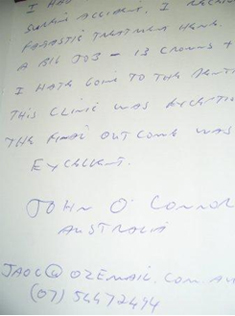 I HAD
SURFING ACCIDENT. I RECEIV
FANTASTIC TREATMENT HERE.
A BIG JOB - 13 CROWNS +
I HATE GOING TO THE DENTI
THIS CLINIC WAS EXCEPTIO
THE FINAL OUTCOME WAS
EXCELLENT.
JOHN O'CONNOR
AUSTRALIA
JAOC@OZEMAIL.COM.AU
(07) 54472494